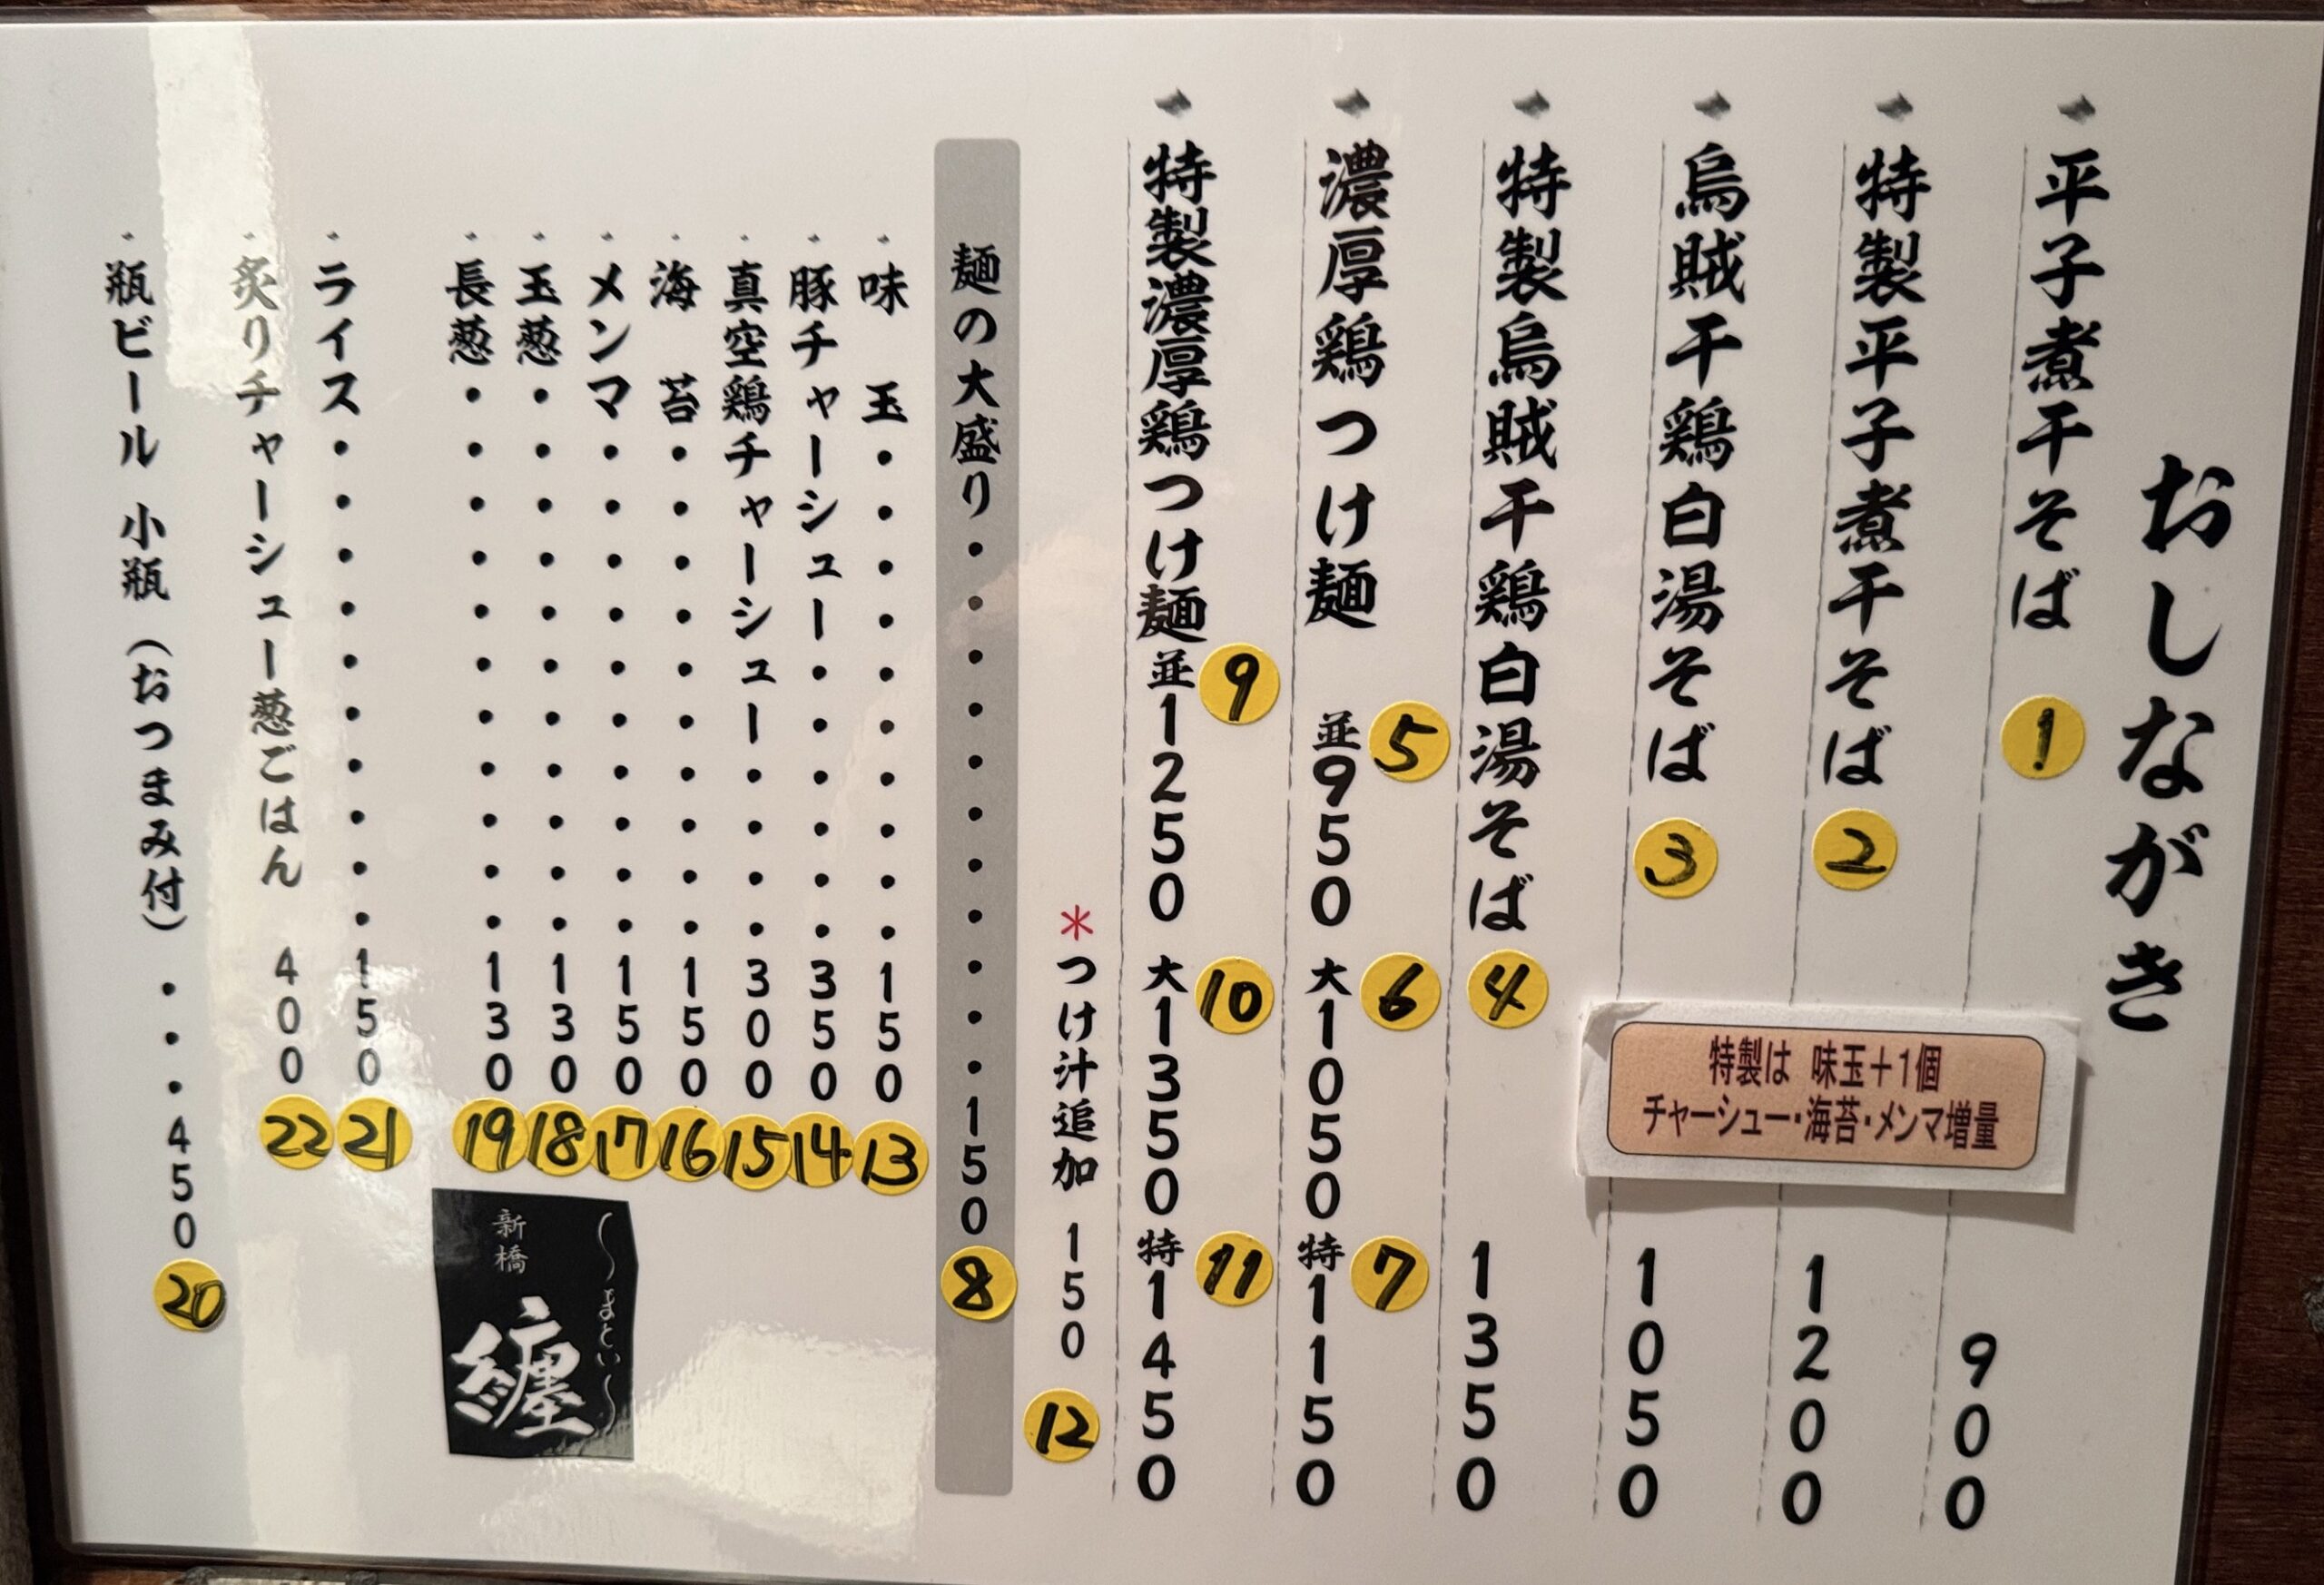 おしながき
平子煮干そば ① 900
特製平子煮干そば ② 1200
烏賊干鶏白湯そば ③ 1050
特製烏賊干鶏白湯そば ④ 1350
特製は 味玉+1個
チャーシュー・海苔・メンマ増量
濃厚鶏つけ麺 並950 ⑤ 大1050 ⑥ 特1150 ⑦
特製濃厚鶏つけ麺 並1250 ⑨ 大1350 ⑩ 特1450 ⑪
*つけ汁追加 150 ⑫
麺の大盛り・・・・・・・・・・・150 ⑧
味 玉・・・・・・・・・・150 ⑬
豚チャーシュー・・・・・・350 ⑭
真空鶏チャーシュー・・・・300 ⑮
海 苔・・・・・・・・・・150 ⑯
メンマ・・・・・・・・・・150 ⑰
玉葱・・・・・・・・・・・130 ⑱
長葱・・・・・・・・・・・130 ⑲
ライス・・・・・・・・・・150 ㉑
炙りチャーシュー葱ごはん 400 ㉒
瓶ビール 小瓶(おつまみ付)・・・450 ⑳
〜まとい〜
新橋
纏